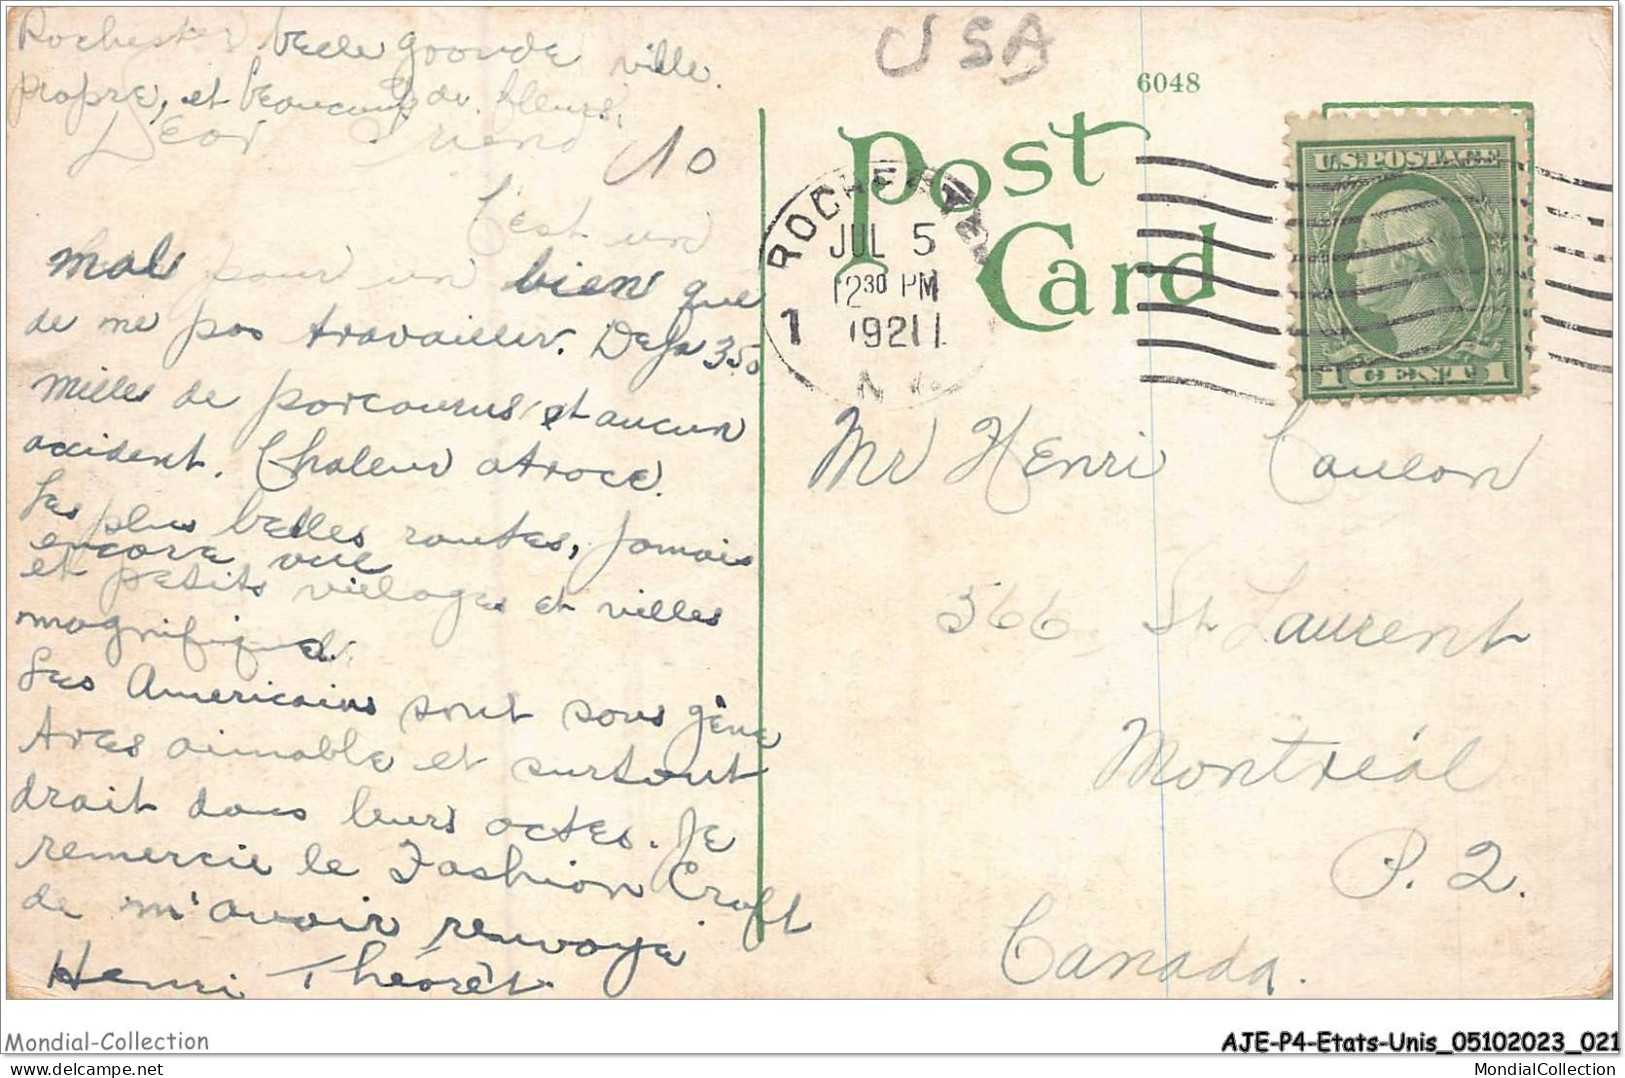 Rochester belle grande ville.
propre, et beaucoup de fleurs.
Dear Friend
10
C'est un
mal pour un bien que
de ne pas travailler. Deja 350
milles de parcourus et aucun
accident. Chaleur atroce.
Les plus belles routes, jamais
encore vue
et petits villages et villes
magnifique
Les Americains sont sans gène
tres aimable et surtout
droit dans leurs actes. Je
remercie le Fashion Craft
de m'avoir renvoyé
Henri Théorèt
USA
6048
Post
Card
ROCHESTER
JUL 5
12 30 PM
1921
N.Y.
1
U.S. POSTAGE
1 CENT 1
Mr Henri Caulon
566 St Laurent
Montréal
P. Q.
Canada.
Mondial-Collection
AJE-P4-Etats-Unis_05102023_021
MondialCollection